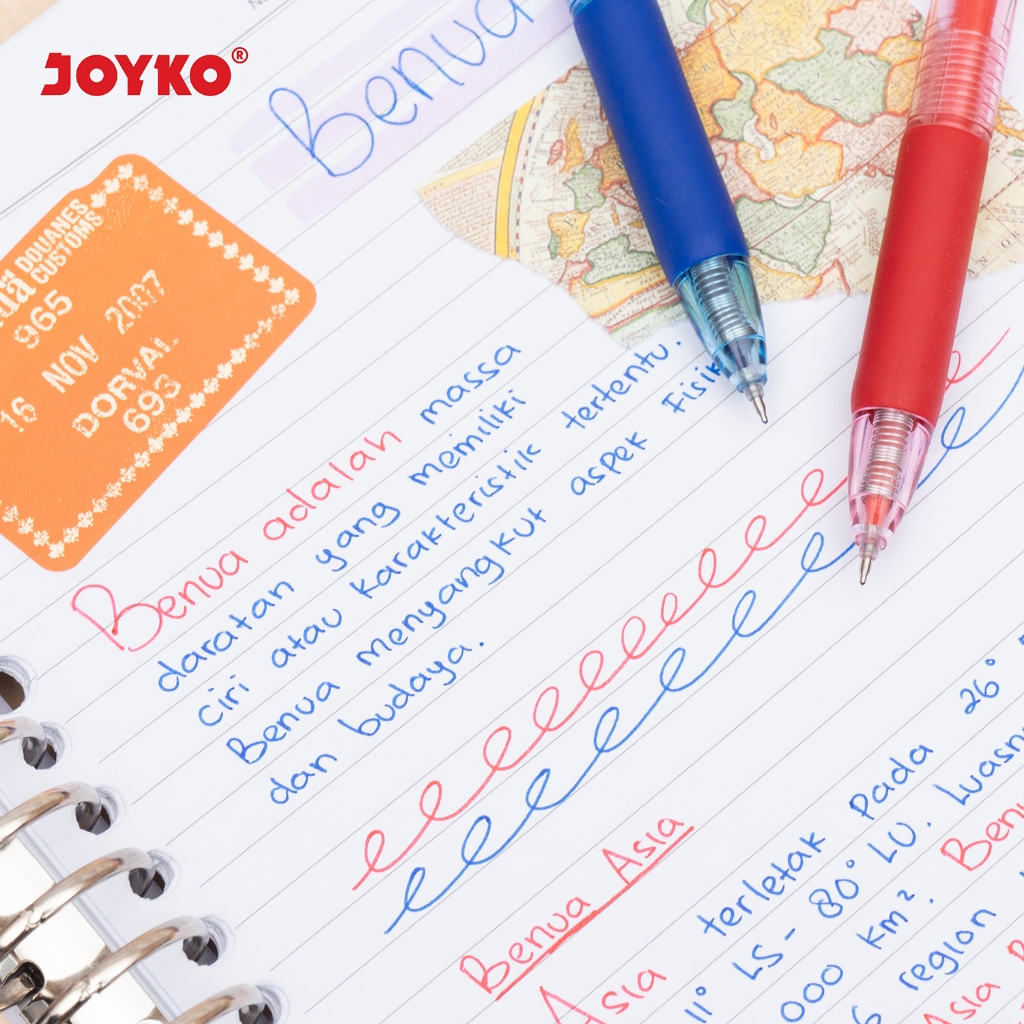 JOYKO®
Benua
DOUANES
CUSTOMS
965
16 NOV 2007
DORVAL
693
Benua adalah massa
daratan yang memiliki
ciri atau karakteristik tertentu.
Benua menyangkut aspek Fisik
dan budaya.
Benua Asia
Asia terletak Pada 26°
11° LS - 80° LU.
000 km².
region